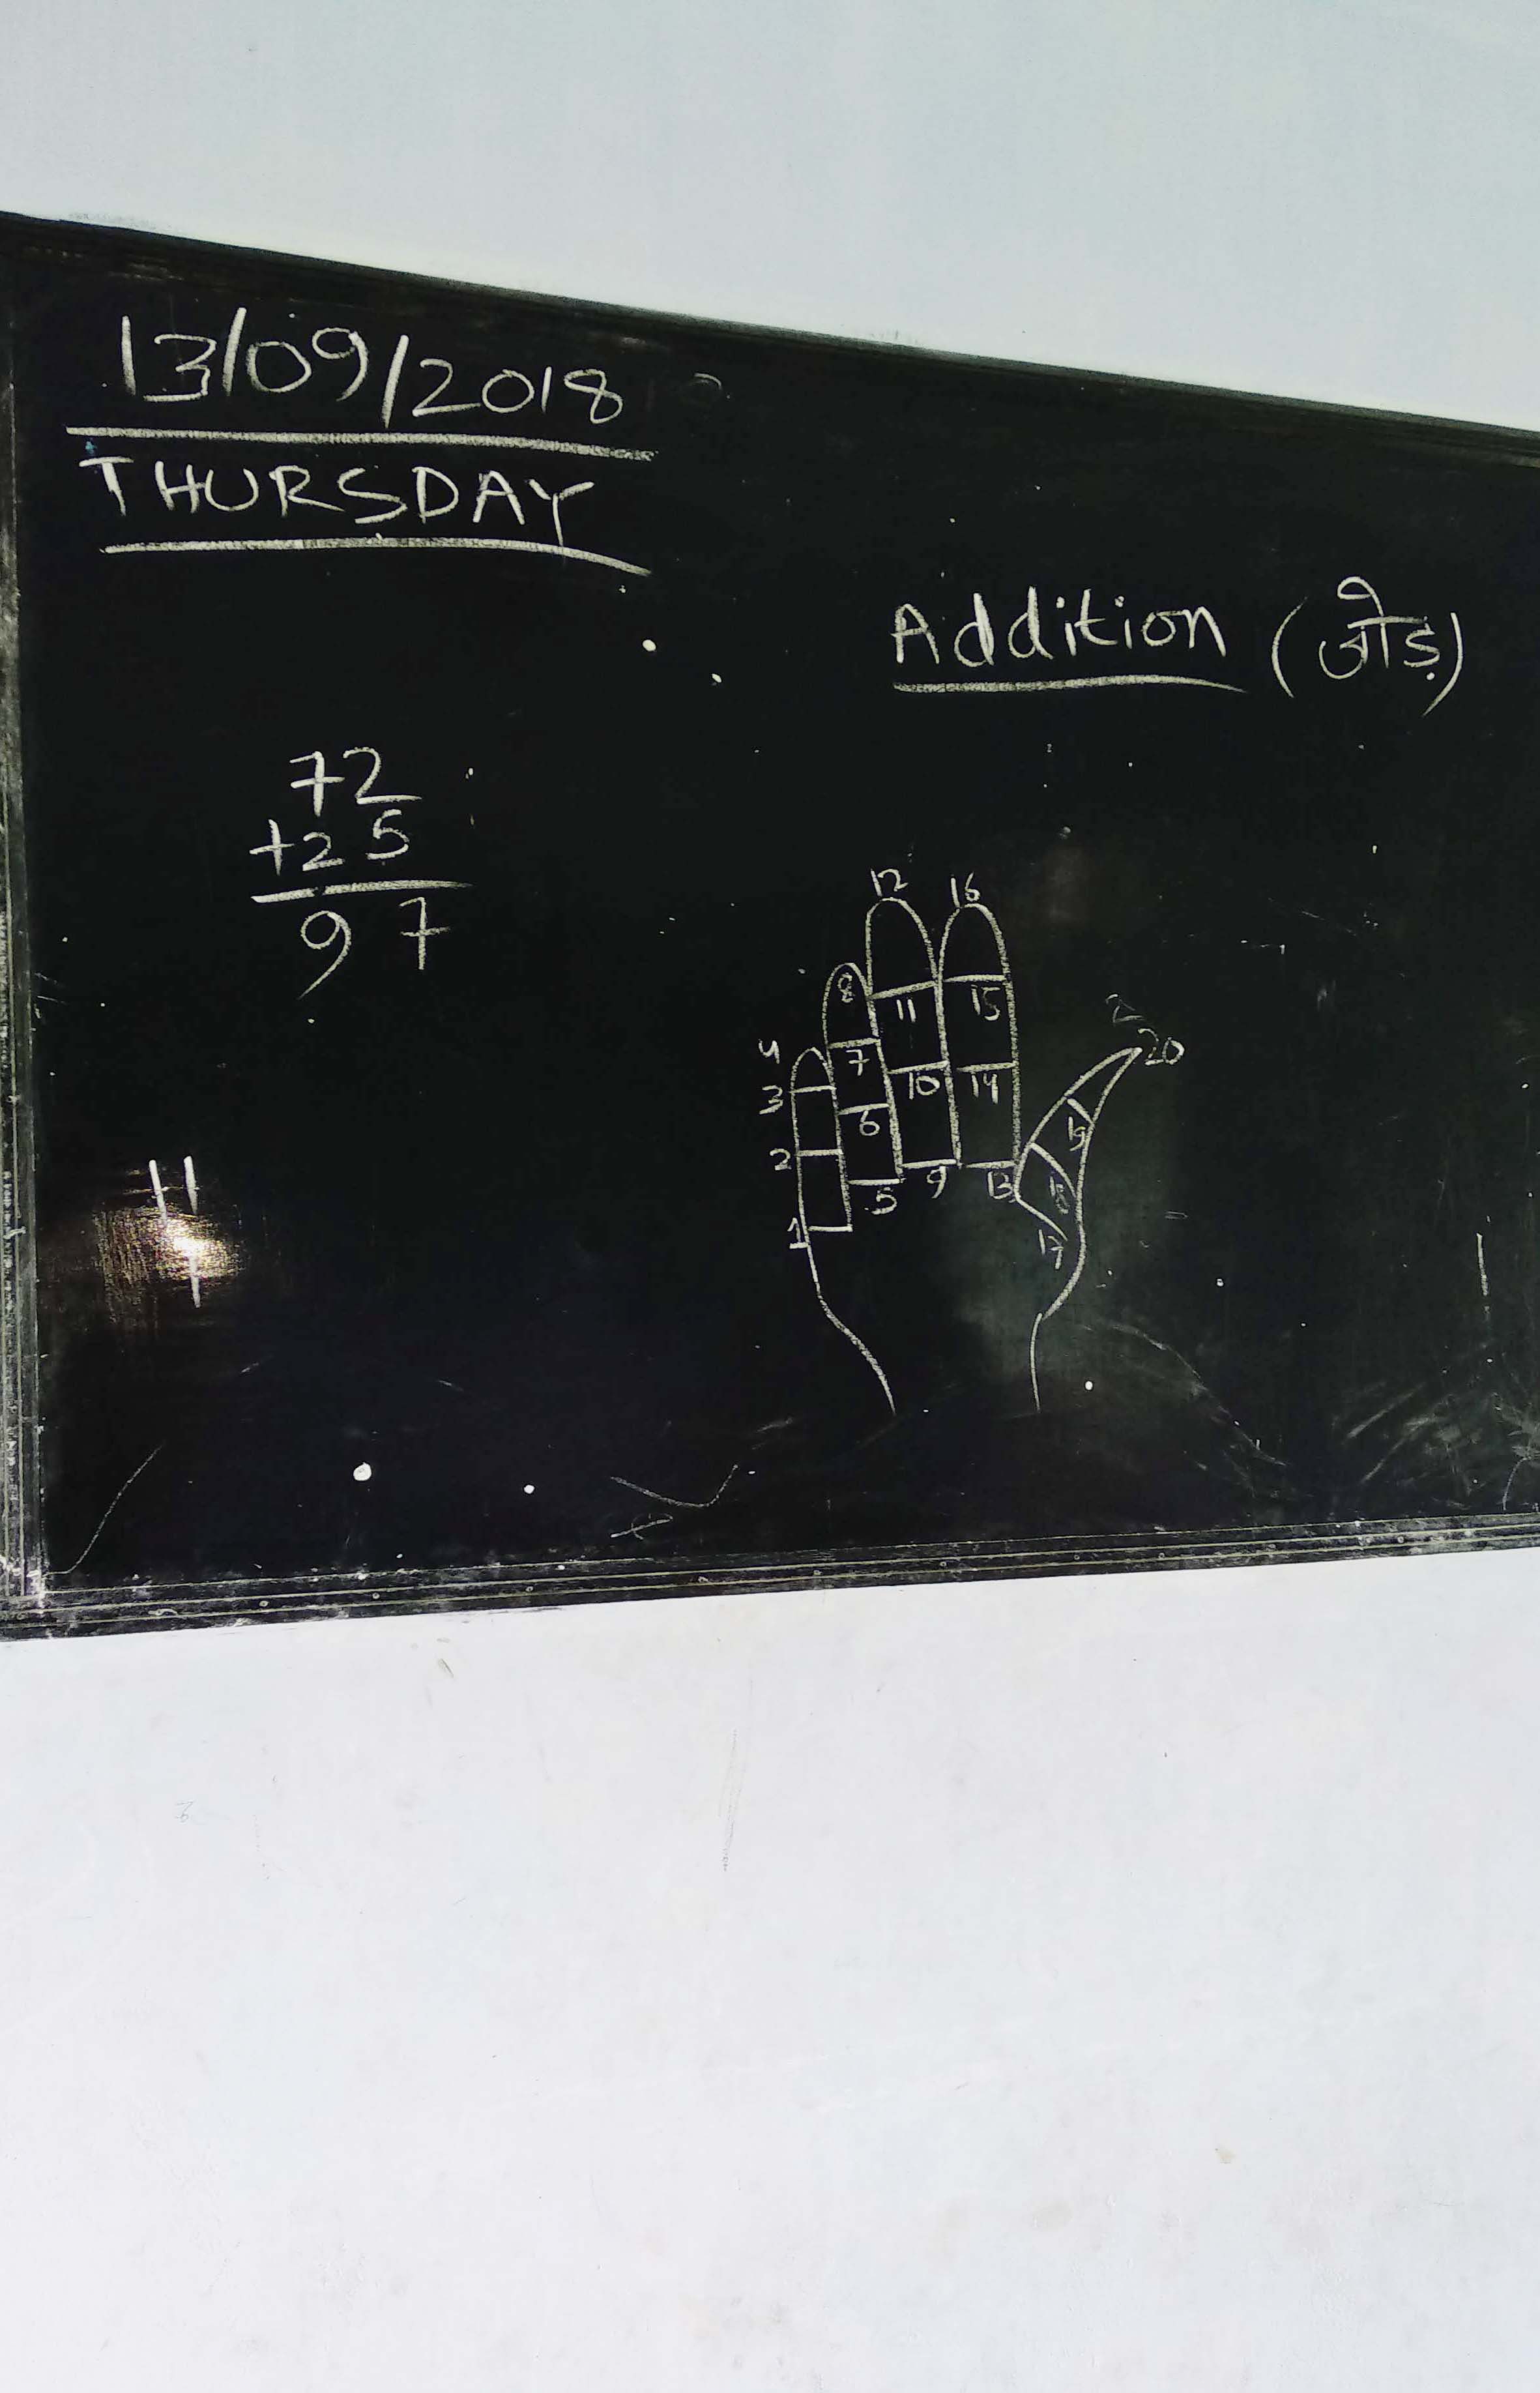 13/09/2018
THURSDAY
Addition (जोड़)
72
+25
97
12 16
8 11 15
4 7 10 14 20
3 6 19
2 5 9 13 18
1 17